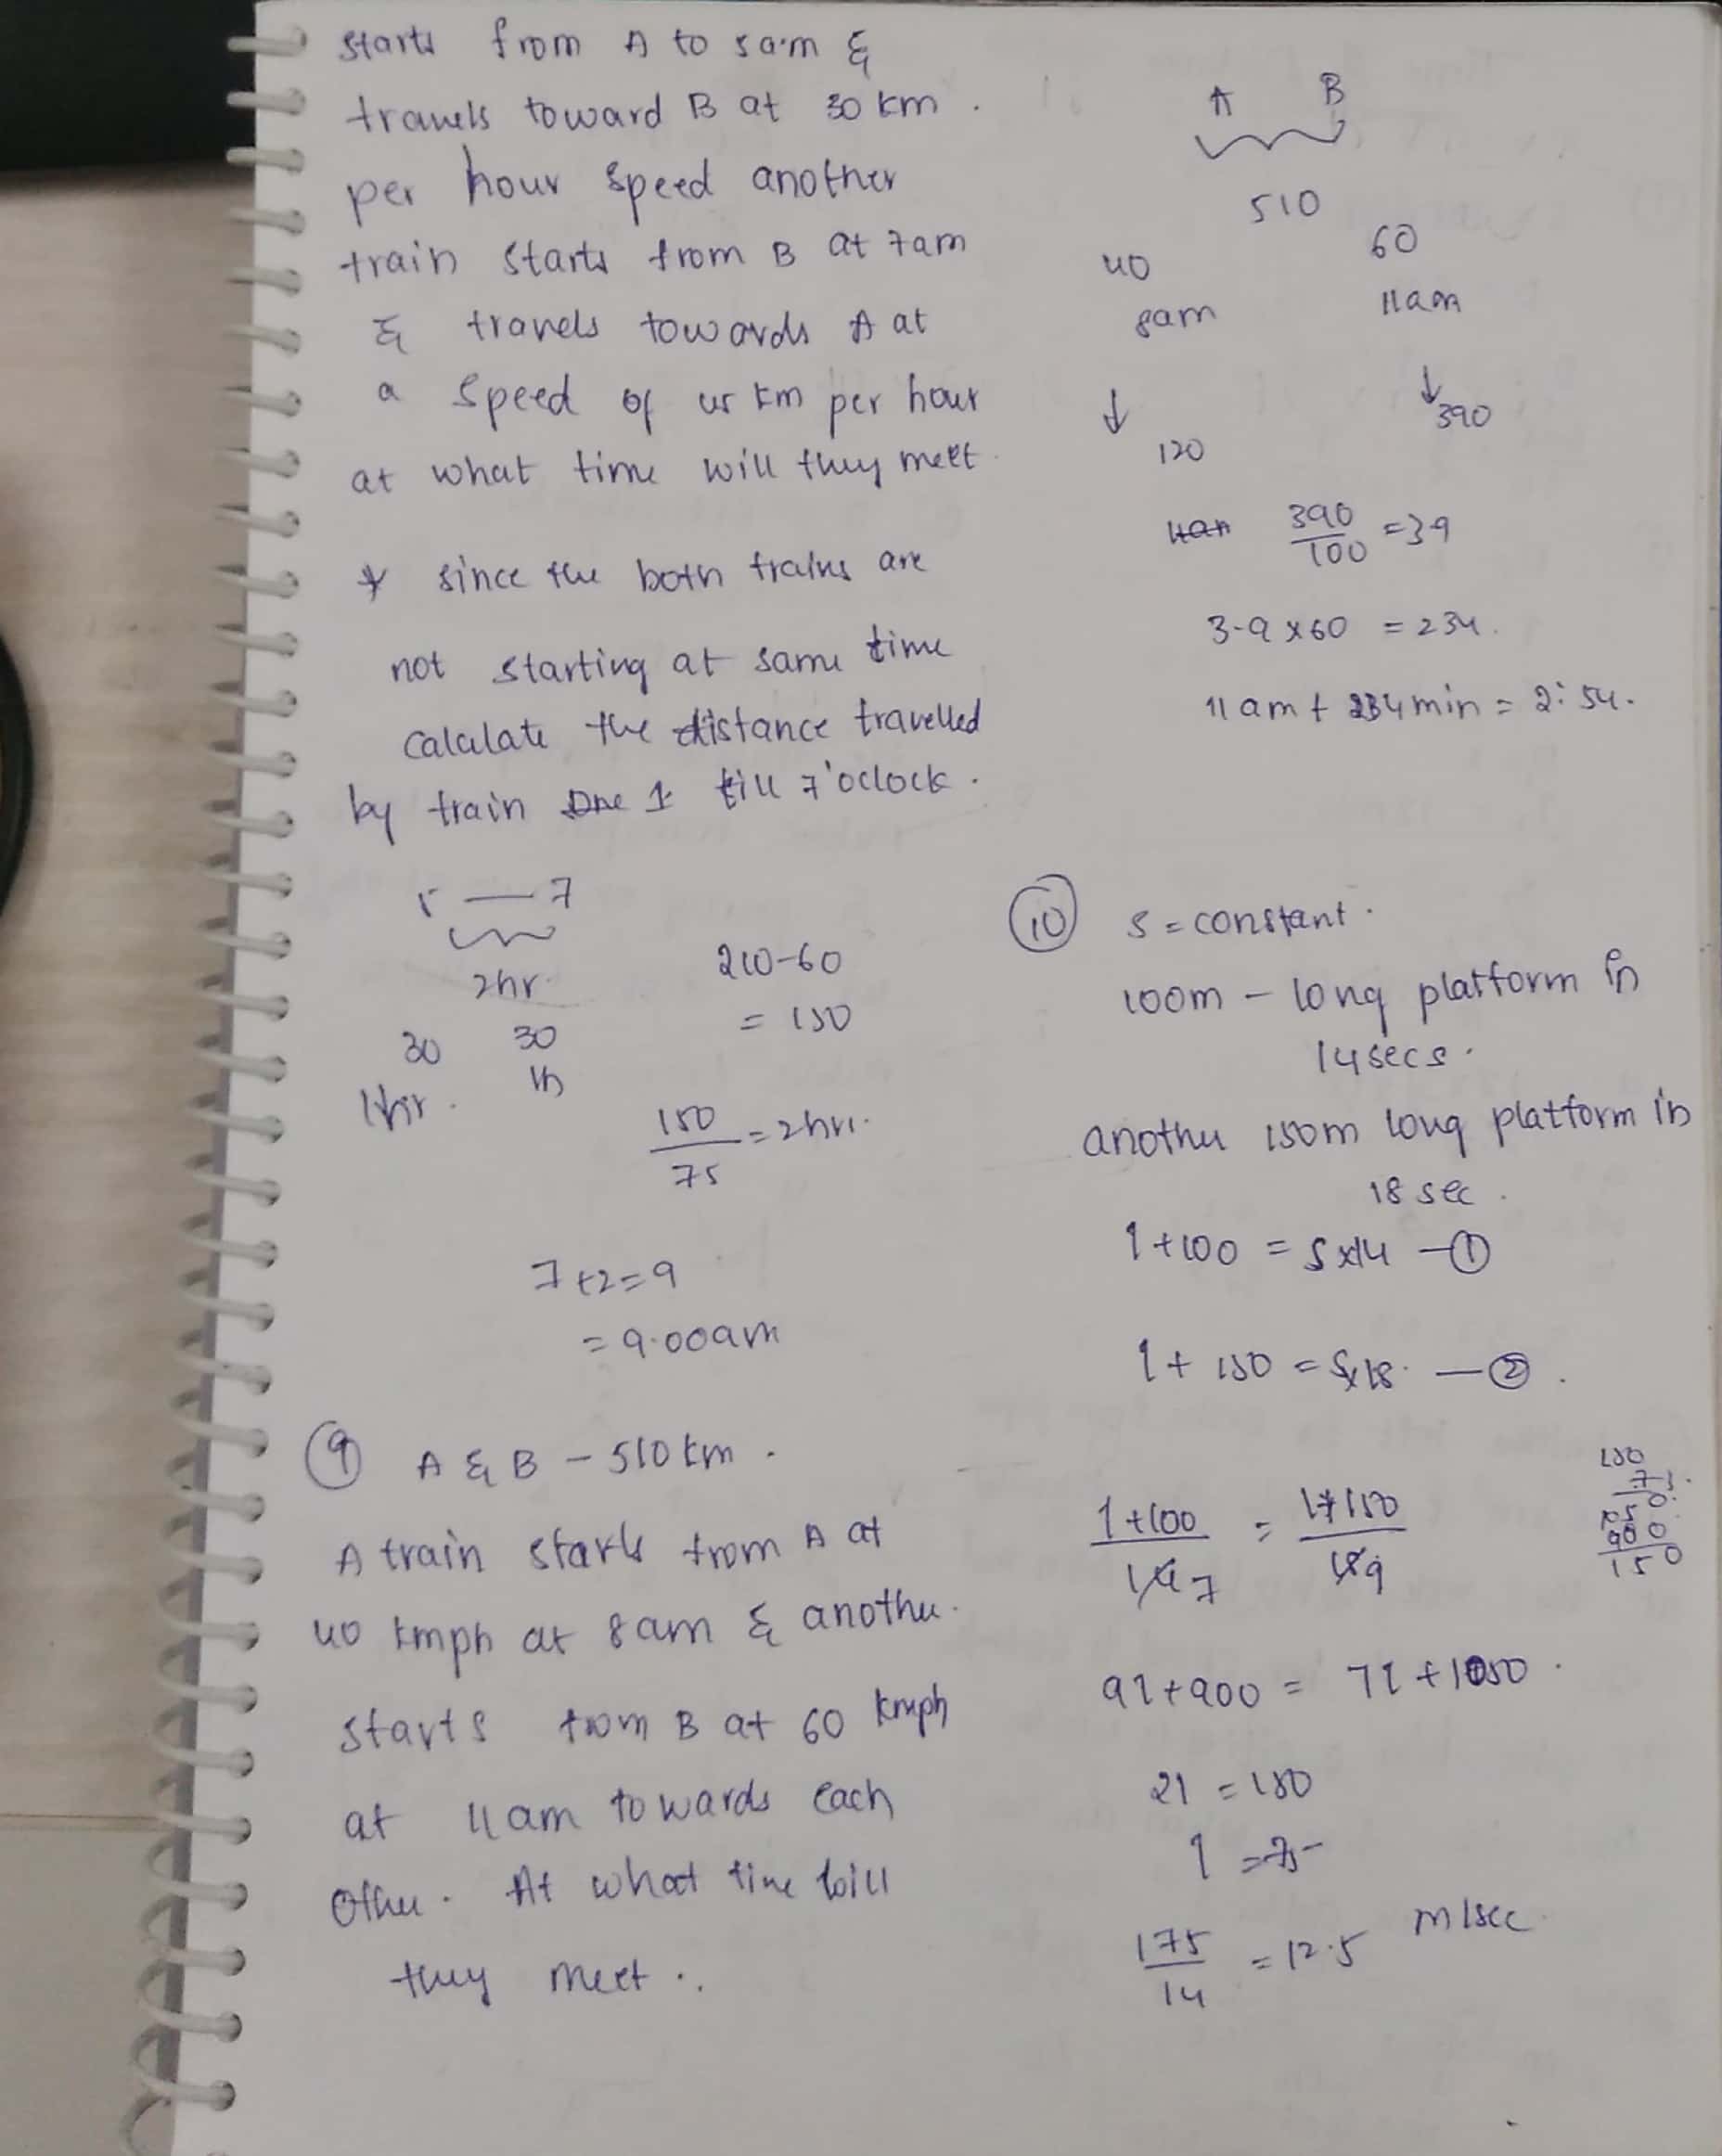 starts from A to 5a.m &
travels toward B at 30 km.
per hour speed another
train starts from B at 7am
& travels towards A at
a speed of 45 km per hour
at what time will they meet.
* since the both trains are
not starting at same time
calculate the distance travelled
by train 1 till 7'oclock.
5 — 7
2hr.
30 30
1hr. 1h
210-60
= 150
150/75 = 2hrs.
7+2=9
= 9.00am
9 A & B - 510 km.
A train starts from A at
40 kmph at 8am & another.
starts from B at 60 kmph
at 11am towards each
other. At what time will
they meet.
A B
510
40 60
8am 11am
↓ ↓
120 390
390/100 = 39
3.9 x 60 = 234.
11am + 234min = 2:54.
10 S = constant.
100m - long platform in
14secs.
another 150m long platform in
18 sec.
l+100 = S x 14 - 1
l+150 = S x 18. - 2.
l+100/14 7 = l+150/18 9
9l+900 = 7l+1050.
2l = 150
l = 75
175/14 = 12.5 m/sec.